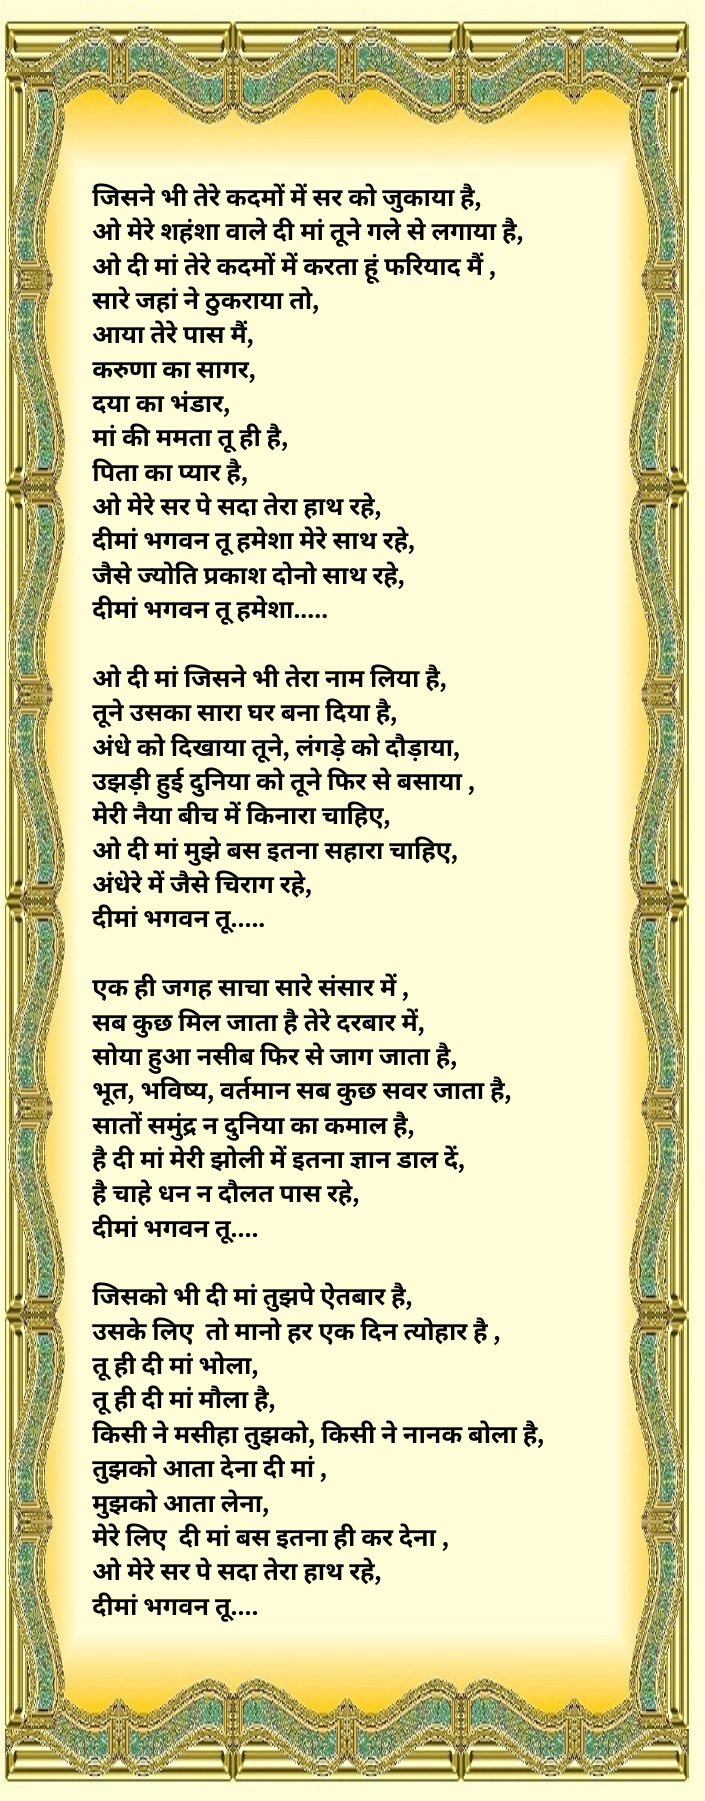 जिसने भी तेरे कदमों में सर को जुकाया है,
ओ मेरे शहंशा वाले दी मां तूने गले से लगाया है,
ओ दी मां तेरे कदमों में करता हूं फरियाद मैं ,
सारे जहां ने ठुकराया तो,
आया तेरे पास मैं,
करुणा का सागर,
दया का भंडार,
मां की ममता तू ही है,
पिता का प्यार है,
ओ मेरे सर पे सदा तेरा हाथ रहे,
दीमां भगवन तू हमेशा मेरे साथ रहे,
जैसे ज्योति प्रकाश दोनो साथ रहे,
दीमां भगवन तू हमेशा.....
ओ दी मां जिसने भी तेरा नाम लिया है,
तूने उसका सारा घर बना दिया है,
अंधे को दिखाया तूने, लंगड़े को दौड़ाया,
उझड़ी हुई दुनिया को तूने फिर से बसाया ,
मेरी नैया बीच में किनारा चाहिए,
ओ दी मां मुझे बस इतना सहारा चाहिए,
अंधेरे में जैसे चिराग रहे,
दीमां भगवन तू.....
एक ही जगह साचा सारे संसार में ,
सब कुछ मिल जाता है तेरे दरबार में,
सोया हुआ नसीब फिर से जाग जाता है,
भूत, भविष्य, वर्तमान सब कुछ सवर जाता है,
सातों समुंद्र न दुनिया का कमाल है,
है दी मां मेरी झोली में इतना ज्ञान डाल दें,
है चाहे धन न दौलत पास रहे,
दीमां भगवन तू....
जिसको भी दी मां तुझपे ऐतबार है,
उसके लिए  तो मानो हर एक दिन त्योहार है ,
तू ही दी मां भोला,
तू ही दी मां मौला है,
किसी ने मसीहा तुझको, किसी ने नानक बोला है,
तुझको आता देना दी मां ,
मुझको आता लेना,
मेरे लिए  दी मां बस इतना ही कर देना ,
ओ मेरे सर पे सदा तेरा हाथ रहे,
दीमां भगवन तू....